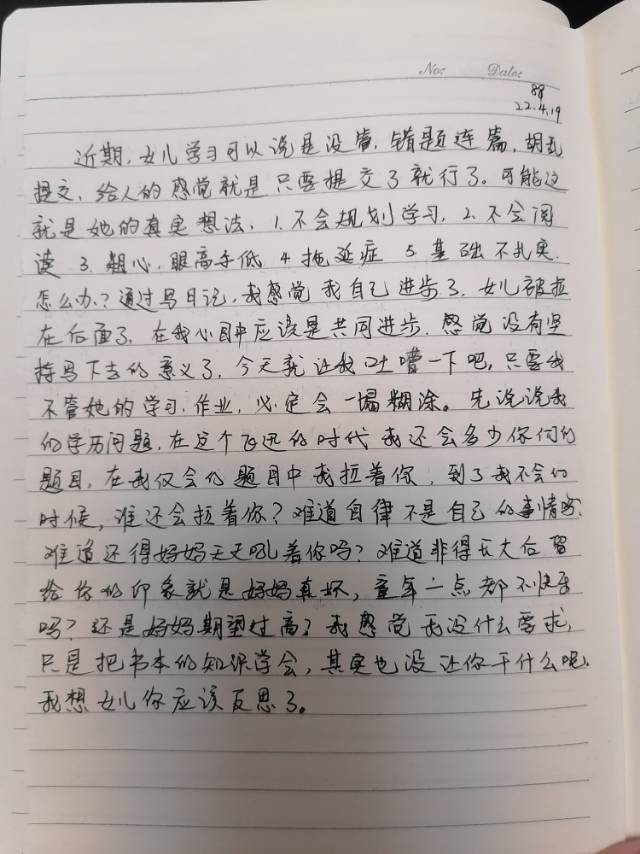 No:
Date:
88
22.4.19
近期,女儿学习可以说是没章,错题连篇,胡乱
提交,给人的感觉就是只要提交了就行了。可能这
就是她的真实想法,1.不会规划学习,2.不会阅
读 3.粗心,眼高手低 4 拖延症 5 基础不扎实.
怎么办?通过写日记,我感觉我自己进步了,女儿被拉
在后面了,在我心目中应该是共同进步,感觉没有坚
持写下去的意义了,今天就让我吐嘈一下吧,只要我
不管她的学习、作业,必定会一塌糊涂。先说说我
的学历问题,在这个飞迅的时代我还会多少你们的
题目,在我仅会的题目中我拉着你,到了我不会的
时候,谁还会拉着你?难道自律不是自己的事情
难道还得妈妈天天吼着你吗?难道非得长大后留
给你的印象就是妈妈真坏,童年一点都不快乐
吗?还是妈妈期望过高?我感觉我没什么要求,
只是把书本的知识学会,其实也没让你干什么呢.
我想女儿你应该反思了。